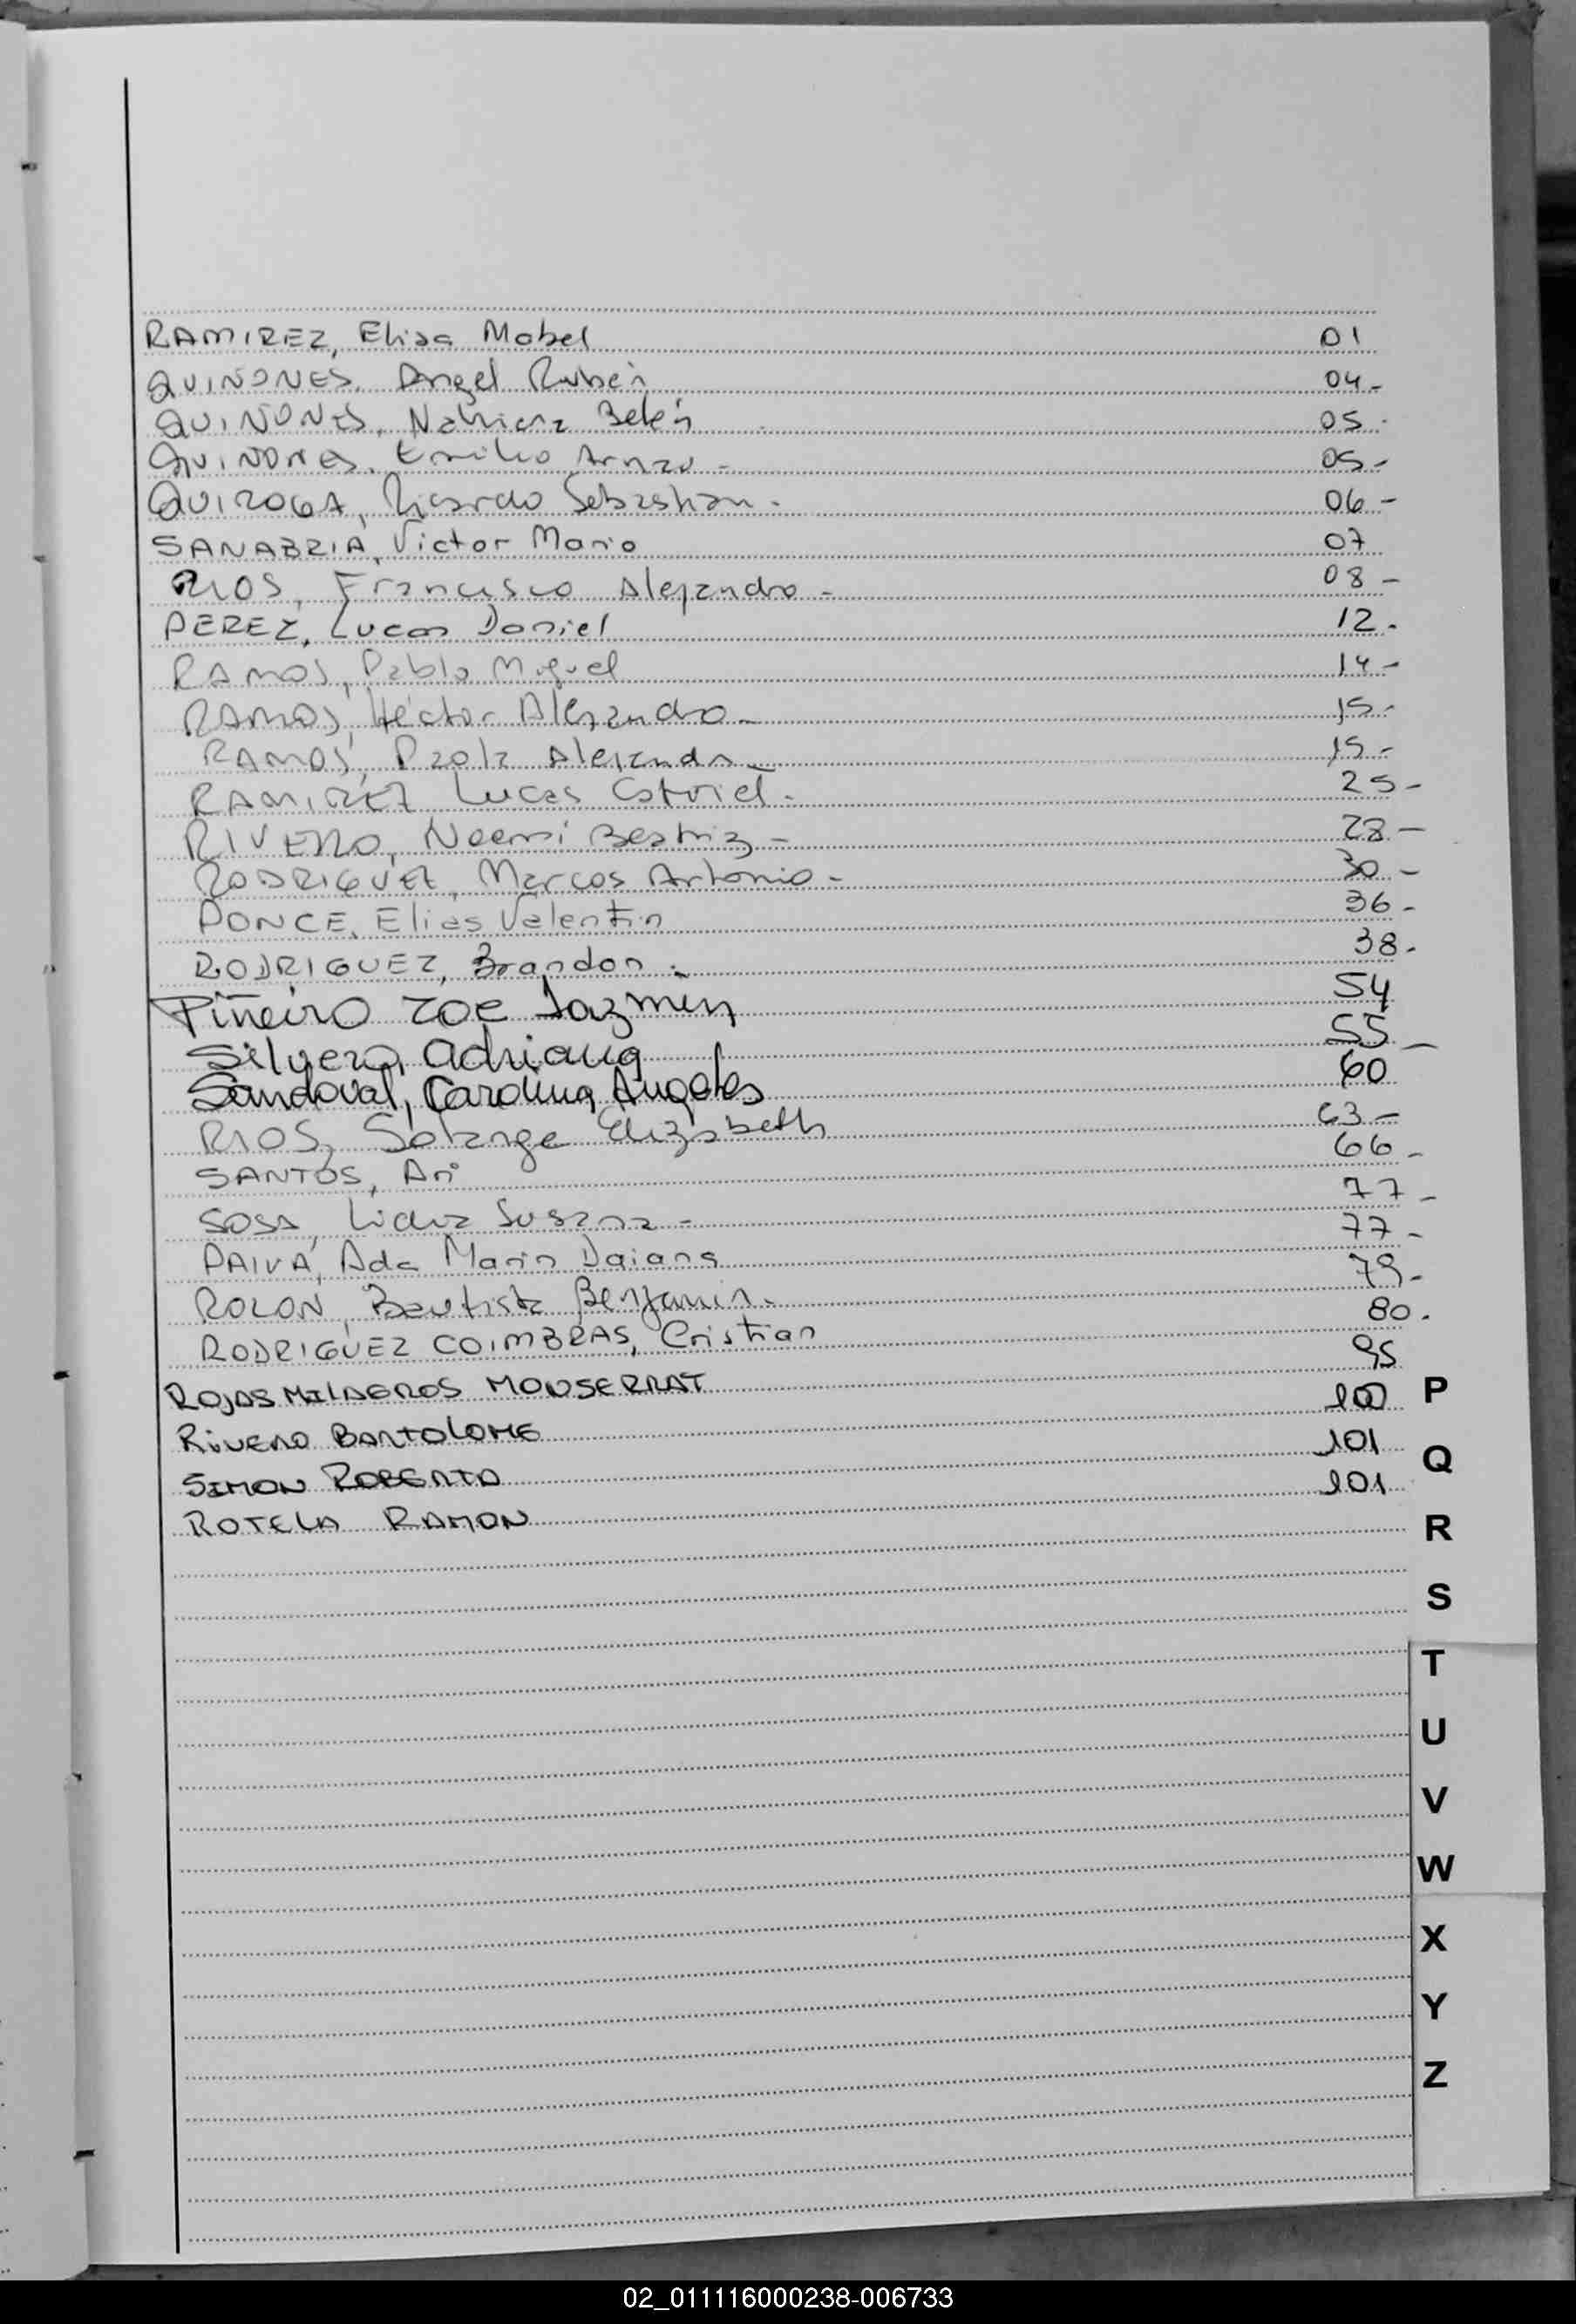 RAMIREZ, Elisa Mabel 01
QUIÑONES, Angel Rubén 04-
QUIÑONES, Nahiara Belén 05-
QUIÑONES, Emilio 05-
QUIROGA, Ricardo Sebastian- 06-
SANABRIA, Victor Mario 07
RIOS, Francisco Alejandro- 08-
PEREZ, Lucas Daniel 12.
RAMOS, Pablo Miguel 14-
RAMOS, Héctor Alejandro- 15-
RAMOS, Paola Alejandra- 15-
RAMIREZ Lucas Gabriel- 25-
RIVERO, Noemi Beatriz- 28-
RODRIGUEZ, Marcos Antonio- 30-
PONCE, Elias Valentin 36-
RODRIGUEZ, Brandon. 38-
Piñeiro Zoe Jazmin 54
Silvero, Adriana 55-
Sandoval, Carolina Angeles 60
RIOS, Solange Elizabeth 63-
SANTOS, Ari 66-
SOSA, Lidia Susana- 77-
PAIVA, Ada Maria Daiana 77-
ROLON, Bautista Benjamin. 79-
RODRIGUEZ COIMBRAS, Cristian 80.
ROJAS MILAGROS MONSERRAT 95
RIVERO BARTOLOME 100
SIMON ROBERTO 101
ROTELA RAMON 101
P
Q
R
S
T
U
V
W
X
Y
Z
02_011116000238-006733